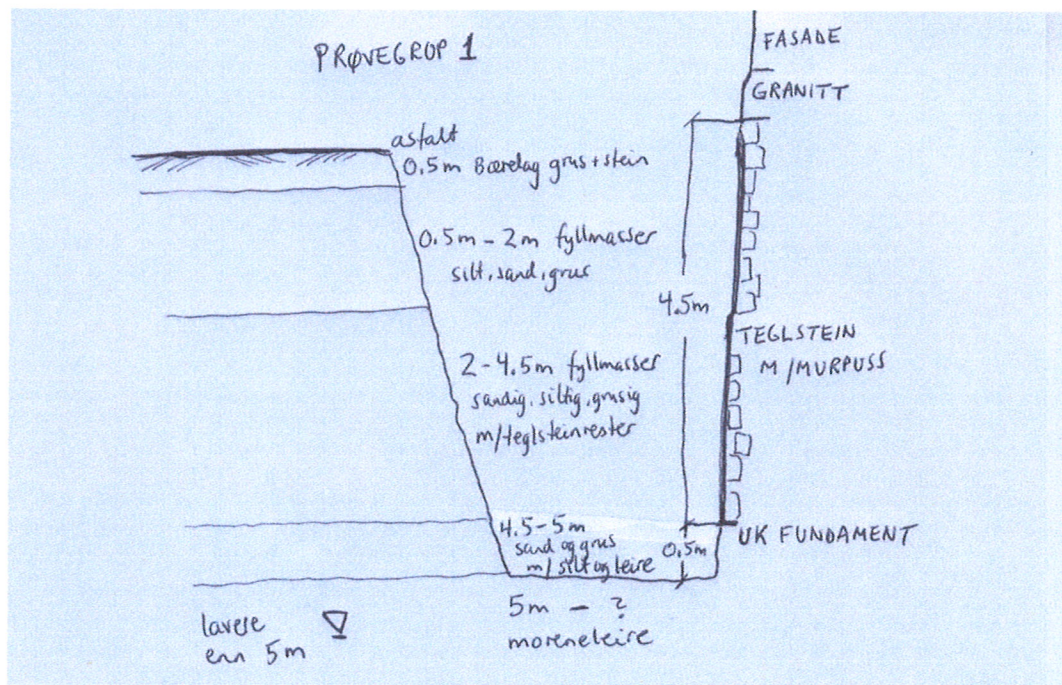 PRØVEGROP 1
FASADE
GRANITT
astalt
0.5m Bærelag grus+stein
0.5m – 2m fyllmasser
silt, sand, grus
4.5m
TEGLSTEIN
M/MURPUSS
2–4.5m fyllmasser
sandig, siltig, grusig
m/teglsteinrester
4.5–5m
sand og grus
m/ silt og leire
0.5m
UK FUNDAMENT
5m – ?
moreneleire
lavere
enn 5m